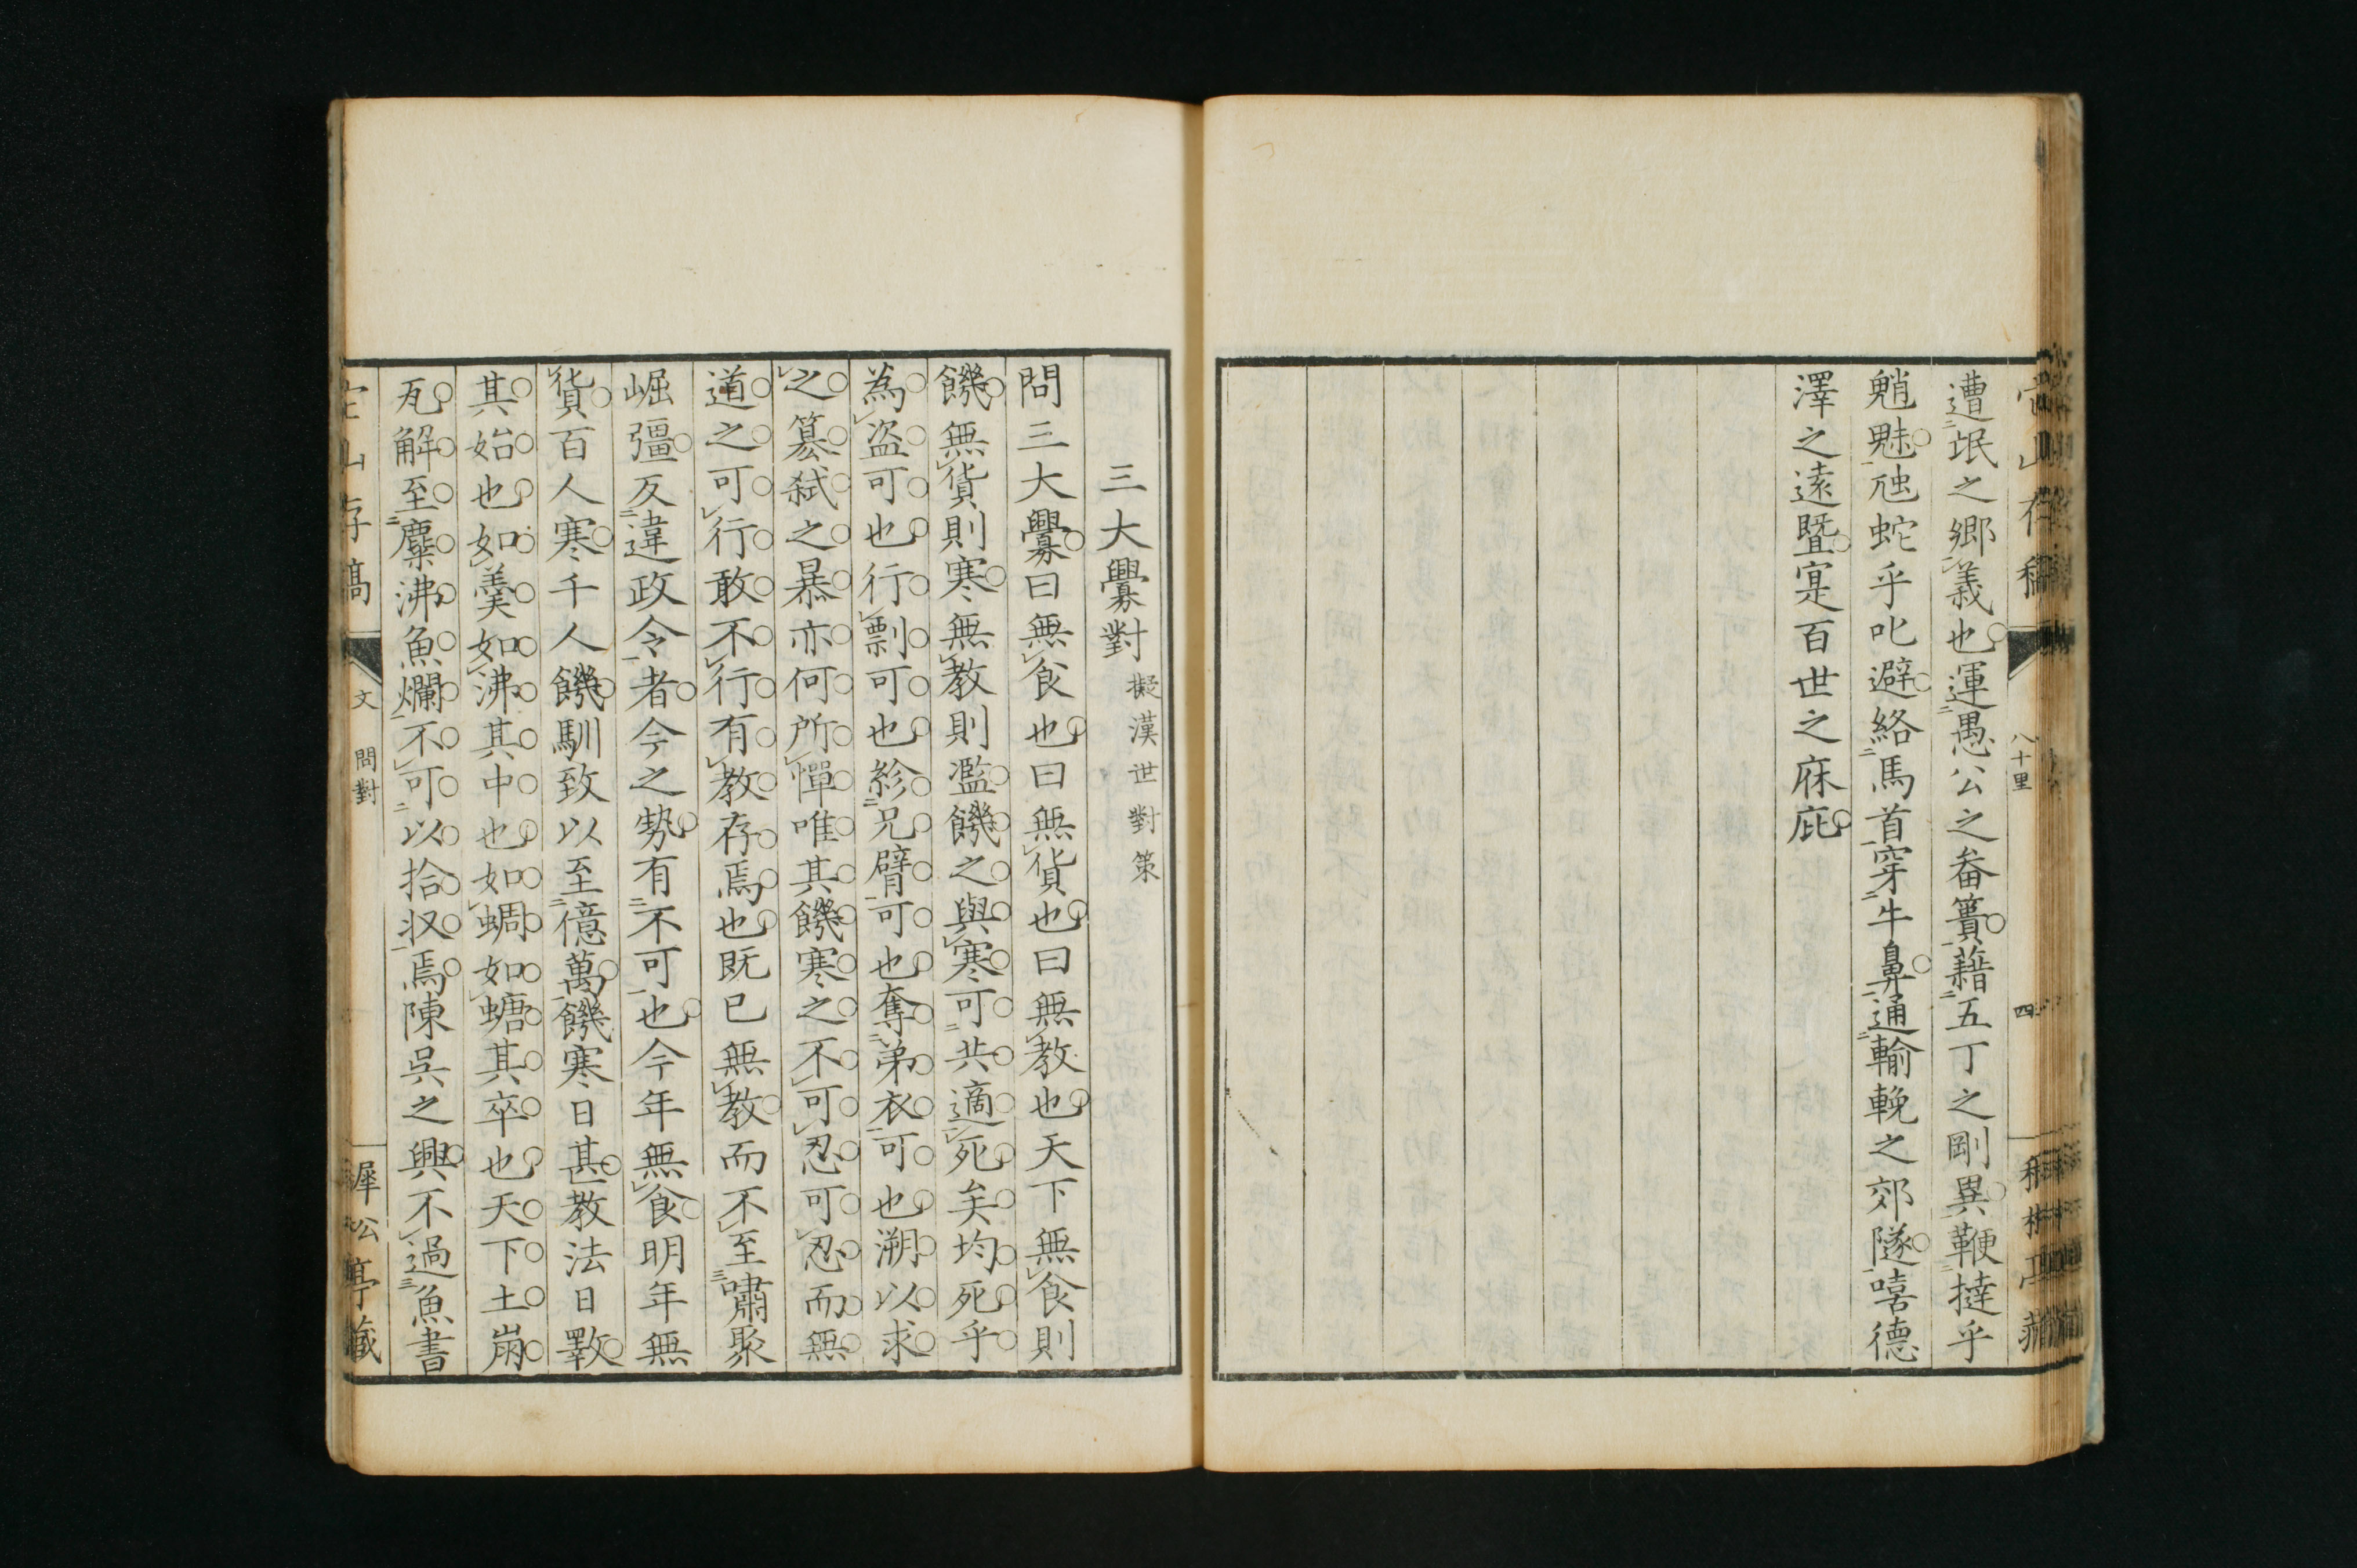 遭氓之郷義也運愚公之畚簣藉五丁之剛異鞭撻乎
魈魅虺蛇乎叱避絡馬首穿牛鼻通輸輓之郊隧嘻德
澤之遠曁寔百世之庥庇
八十里
四
三大釁對 擬漢世對策
問三大釁曰無食也曰無貨也曰無教也天下無食則
饑無貨則寒無教則濫饑之與寒可共適死矣均死乎
為盗可也行剽可也紾兄臂可也奪弟衣可也溯以求
之篡弑之暴亦何所憚唯其饑寒之不可忍可忍而無
道之可行敢不行有教存焉也既已無教而不至嘯聚
崛彊反違政令者今之勢有不可也今年無食明年無
貨百人寒千人饑馴致以至億萬饑寒日甚教法日斁
其始也如羹如沸其中也如蜩如螗其卒也天下土崩
瓦解至麋沸魚爛不可以拾収焉陳呉之興不過魚書
山存稿
文 問對
犀公亭藏